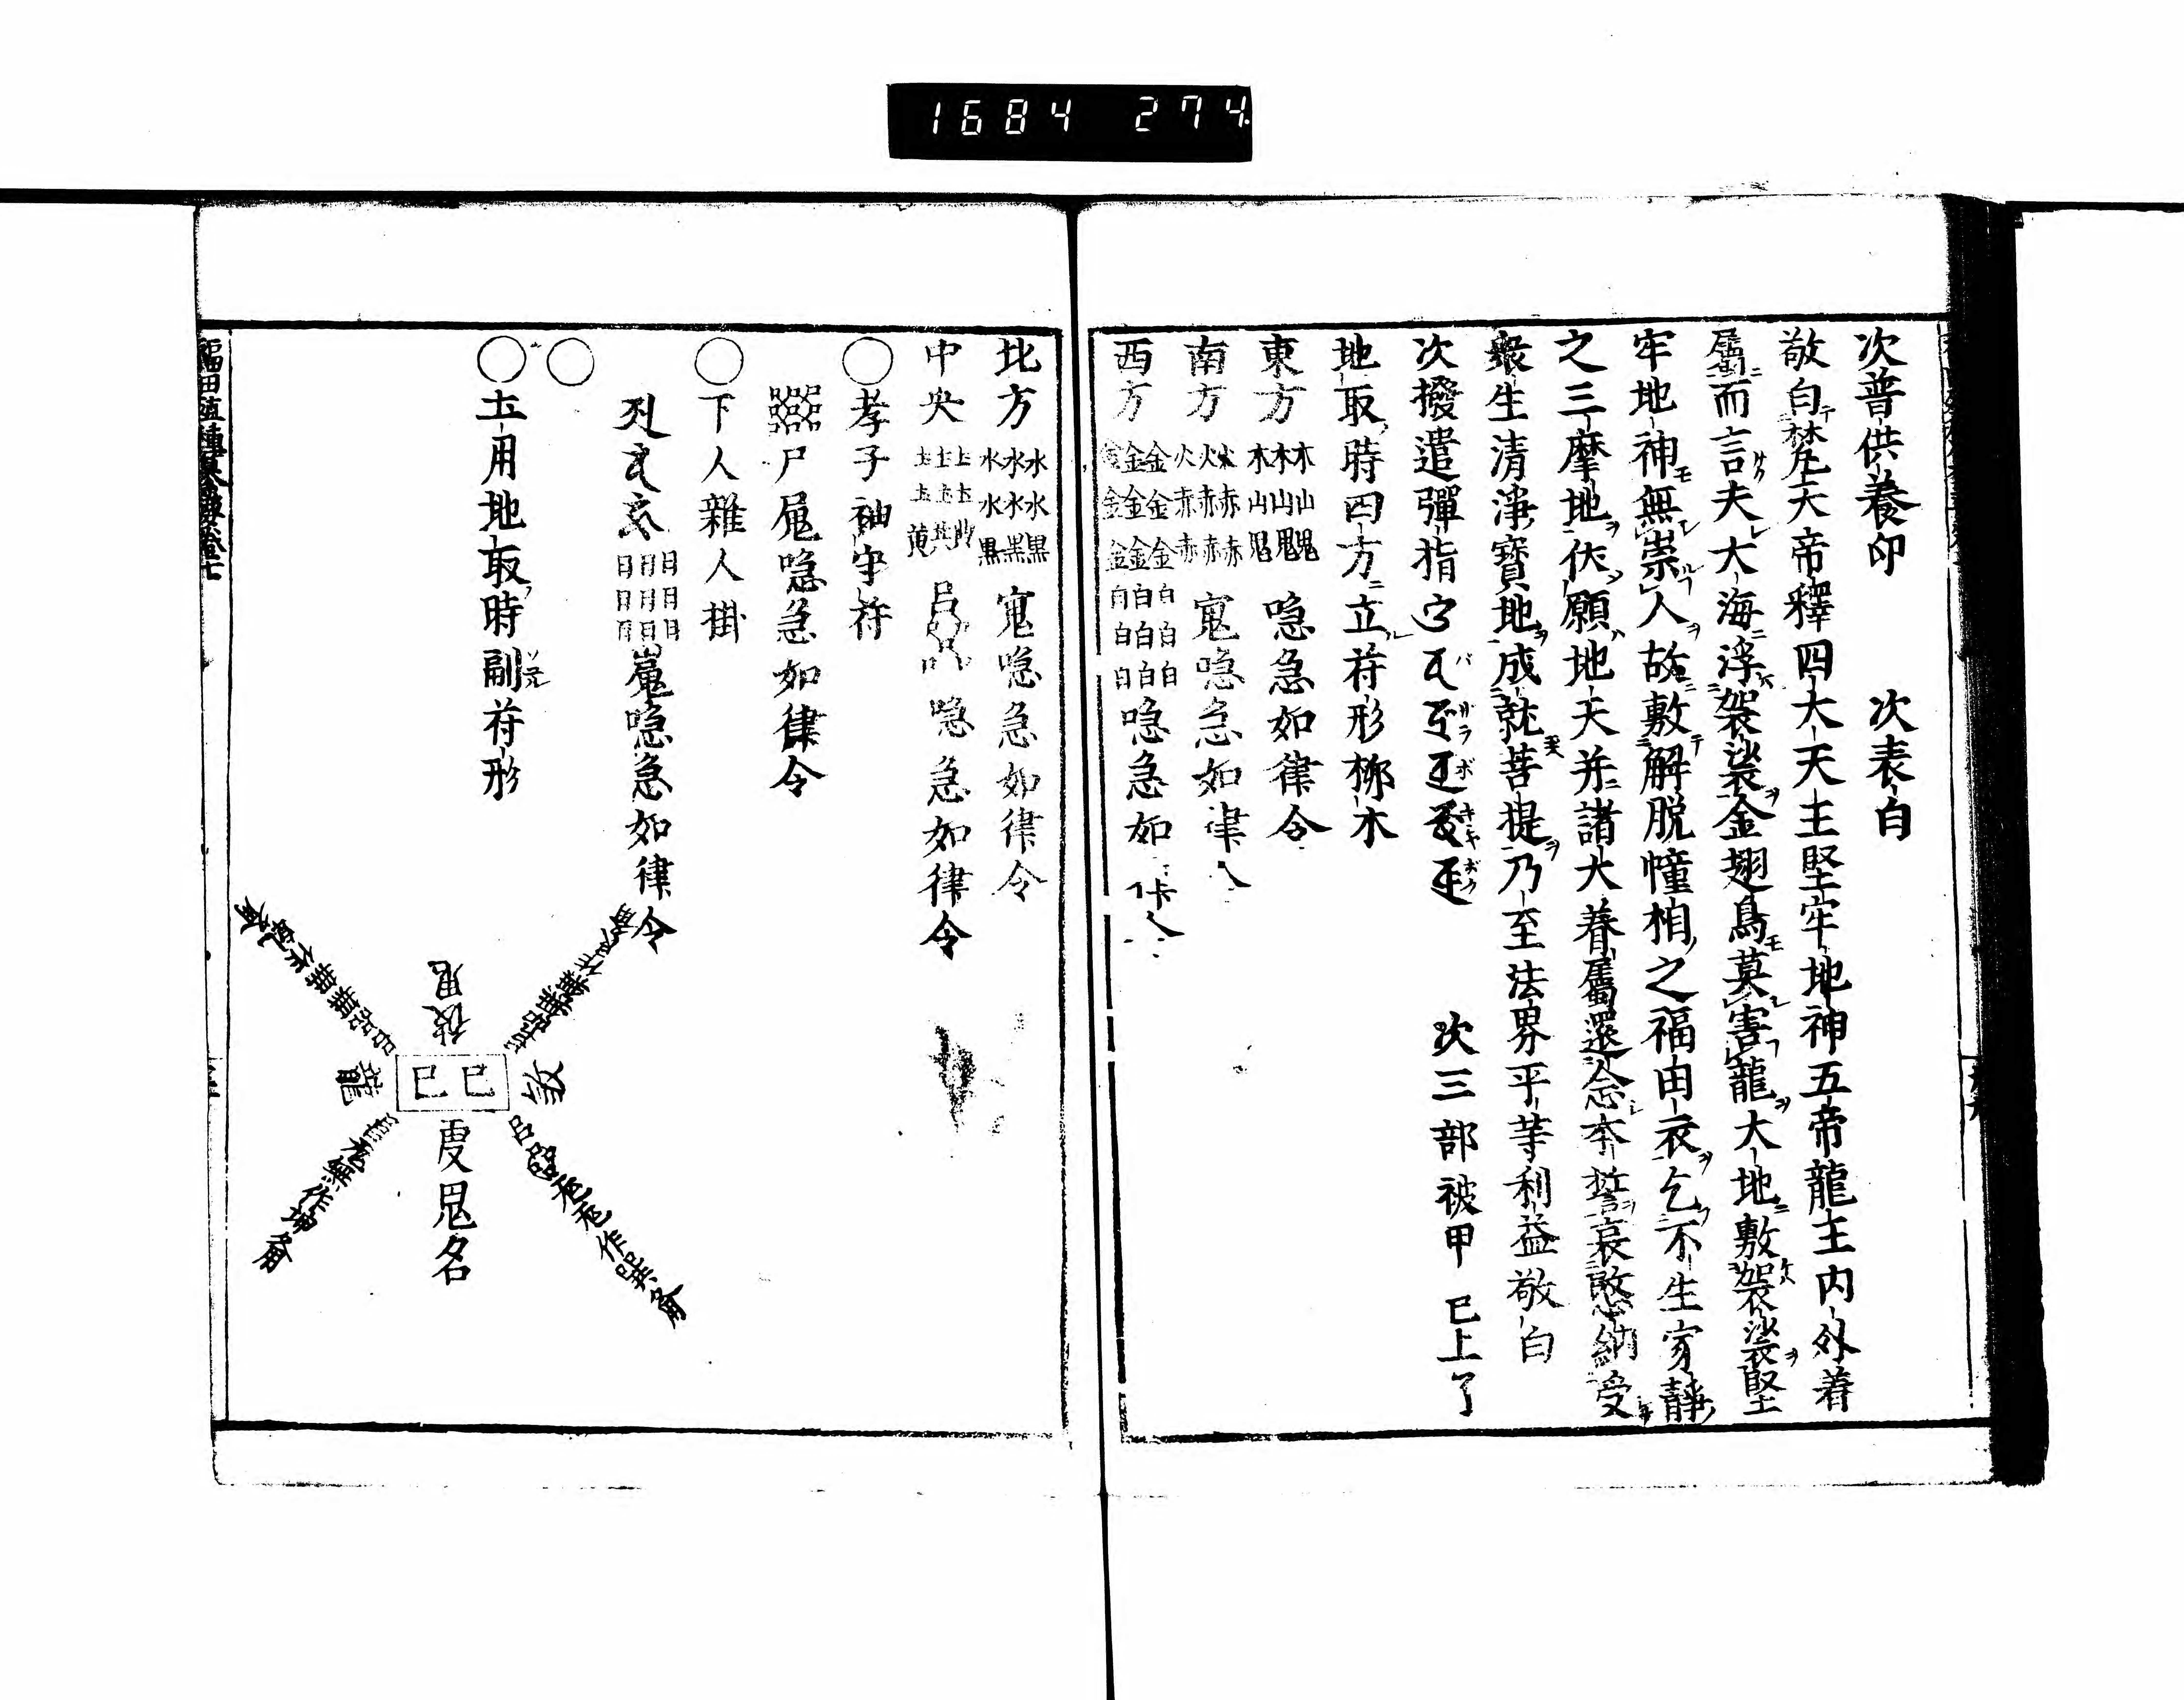 1684 274.
次普供養印 次表白
敬白梵天帝釋四大天王堅牢地神五帝龍王内外眷
属而言夫大海浮袈裟金翅鳥莫害龍大地敷袈裟堅
牢地神無崇人故敷解脱幢相之福田衣乞不生家靜
之三摩地伏願地天并諸大眷屬還念本誓哀愍納受
衆生清淨寶地成就菩提乃至法界平等利益敬白
次撥遣彈指 次三部被甲 已上了
地取時四方立符形 木
東方 木木木 山山山 鬼鬼鬼 喼急如律令
南方 火火火 赤赤赤 赤赤赤 喼急如律
西方 金金金 金金金 金金金 白白白 白白白 白白白 喼急如
北方 水水水 水水水 黒黒黒 喼急如律令
中央 土土土 土土 黄 喼急如律令
○孝子袖字符
尸 喼急如律令
○下人雜人掛
日日日 日日日 日日日 喼急如律令
○
○土用地取時副符形
鬼
龍 巳巳
鬼名
作巽角
作坤角
福田殖種纂要卷七